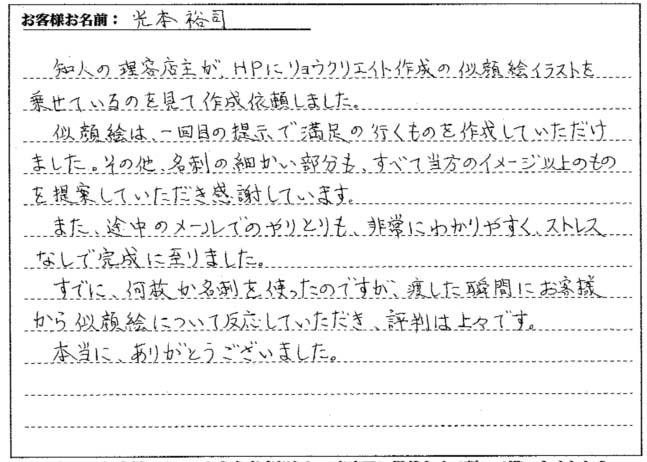 お客様お名前： 光本 裕司
知人の理容店主が、HPにリョウクリエイト作成の似顔絵イラストを
乗せているのを見て作成依頼しました。
似顔絵は、一回目の提示で満足の行くものを作成していただけ
ました。その他、名刺の細かい部分も、すべて当方のイメージ以上のもの
を提案していただき感謝しています。
また、途中のメールでのやりとりも、非常にわかりやすく、ストレス
なしで完成に至りました。
すでに、何枚か名刺を使ったのですが、渡した瞬間にお客様
から似顔絵について反応していただき、評判は上々です。
本当に、ありがとうございました。